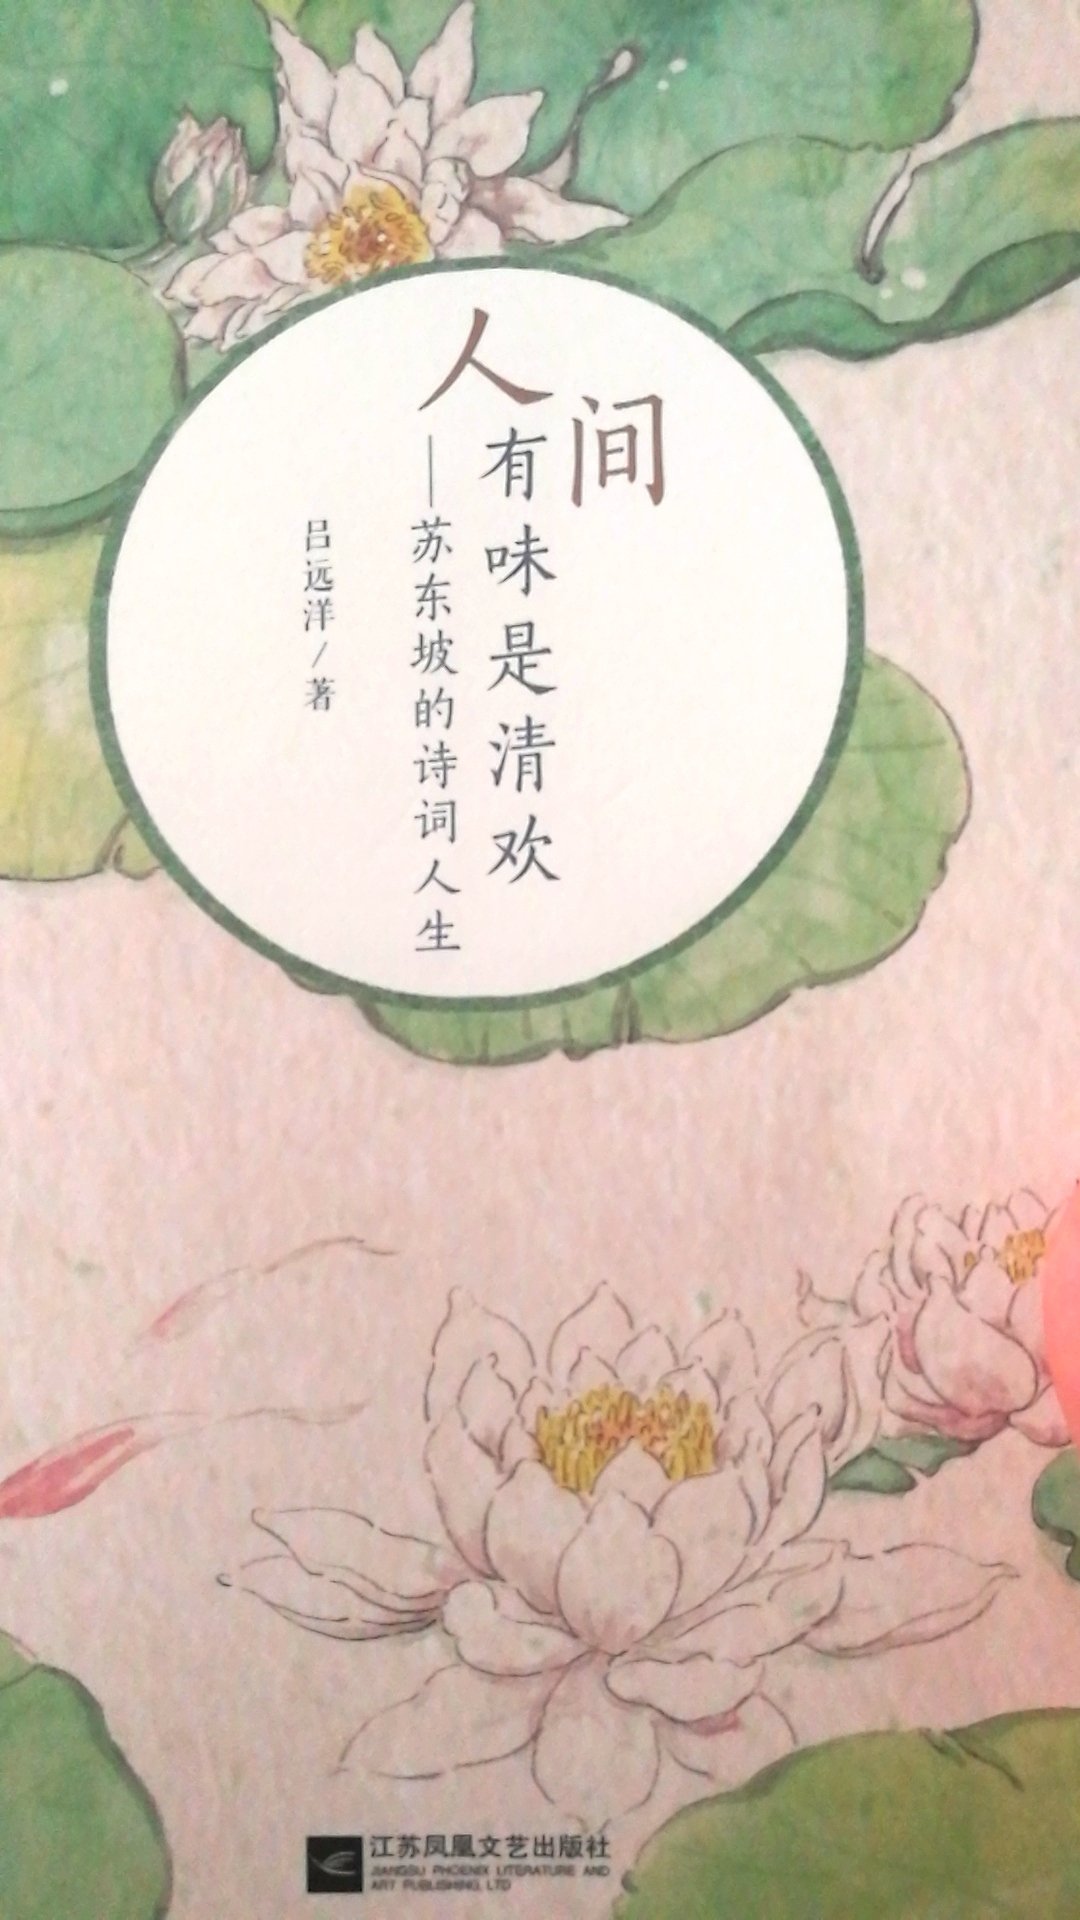 人间
有味是清欢
——苏东坡的诗词人生
吕远洋/著
江苏凤凰文艺出版社
JIANGSU PHOENIX LITERATURE AND
ART PUBLISHING, LTD